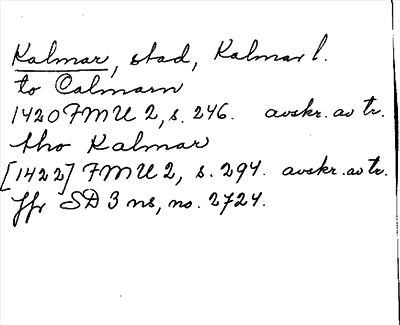 Kalmar, stad, Kalmar l.
to Calmarn
1420 FMU 2, s. 246. avskr. av tr.
tho Kalmar
[1422] FMU 2, s. 294. avskr. av tr.
Jfr SD 3 ns, no. 2724.